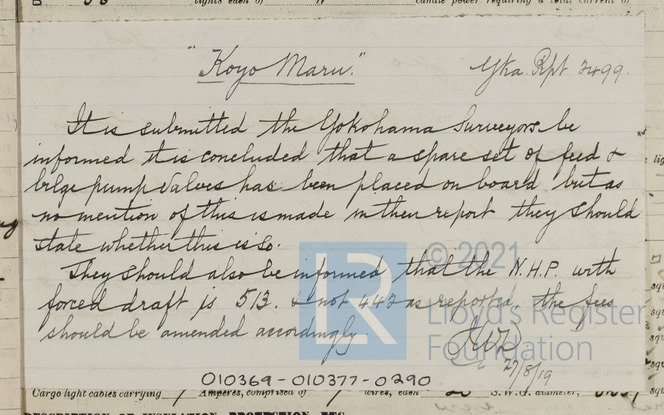 lights each of candle power requiring a total current of
"Koyo Maru."
Yka. Rpt 3499.
It is submitted the Yokohama Surveyors be
informed it is concluded that a spare set of feed &
bilge pump valves has been placed on board but as
no mention of this is made in their report they should
state whether this is so.
They should also be informed that the N.H.P. with
forced draft is 513. & not 442 as reported, the fees
should be amended accordingly
27/8/19
LR
© 2021
Lloyd's Register
Foundation
010369-010377-0290
Cargo light cables carrying Amperes, comprised of wires, each S.W.G. diameter,
DESCRIPTION OF INSULATION, PROTECTION, ETC.